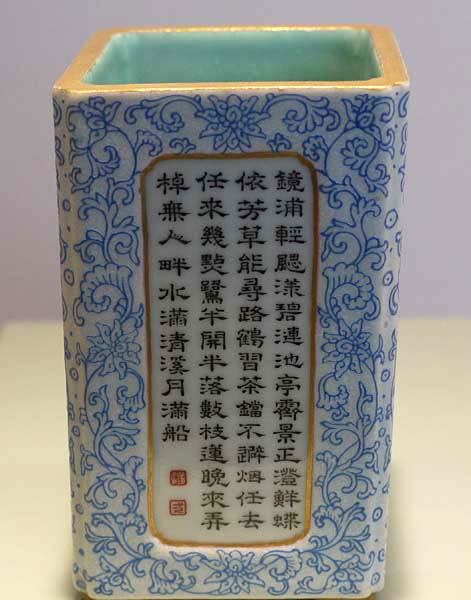 鏡浦輕颸漾碧漣池亭霽景正澄鮮蝶
依芳草能尋路鶴習茶鐺不避烟任去
任來幾點鷺半開半落數枝蓮晚來弄
棹無人畔水滿清溪月滿船